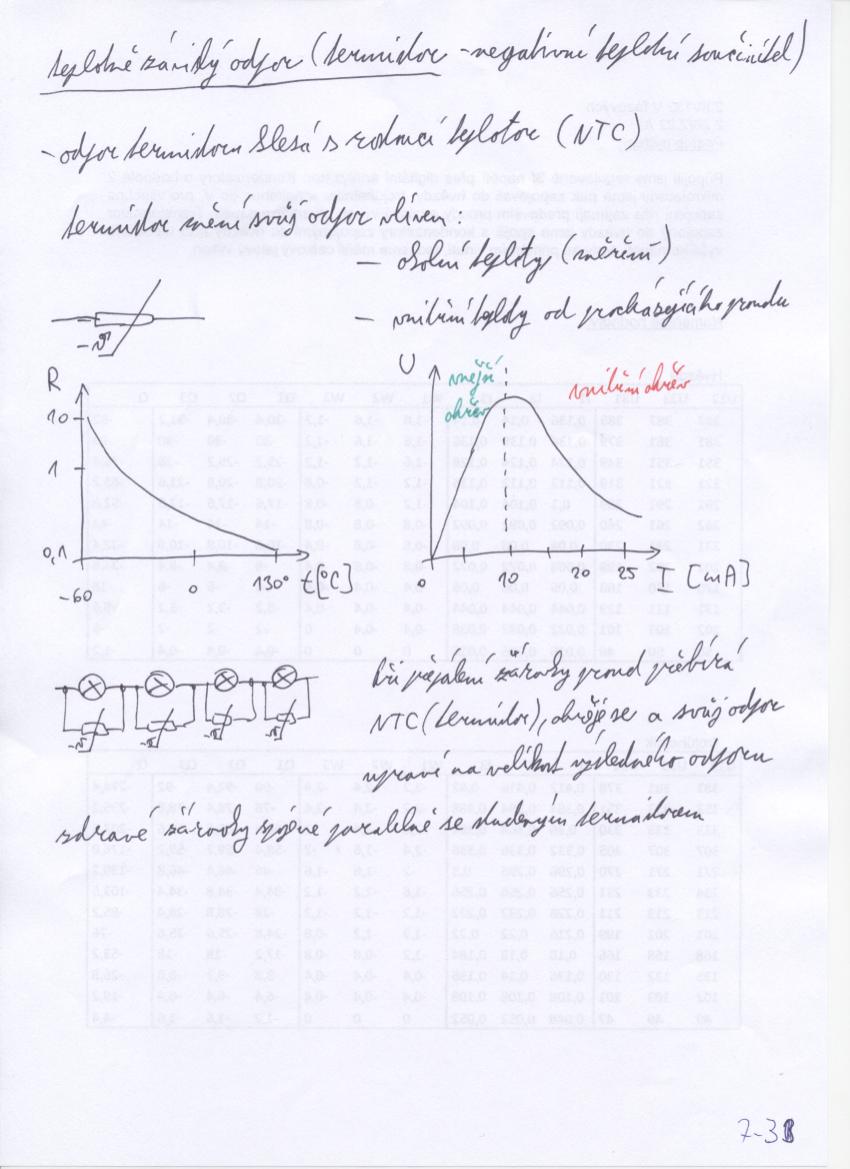 teplotně závislý odpor (termistor - negativní teplotní součinitel)
- odpor termistoru klesá s rostoucí teplotou (NTC)
termistor mění svůj odpor vlivem:
- okolní teploty (měření)
- vnitřní teploty od procházejícího proudu
-ϑ
R
10
1
0,1
-60
0
130°
t[°C]
U
vnější
ohřev
vnitřní ohřev
0
10
20
25
I [mA]
-ϑ
-ϑ
-ϑ
-ϑ
Při přepálení žárovky proud přebírá
NTC (termistor), ohřeje se a svůj odpor
upraví na velikost výsledného odporu
zdravé žárovky spojené paralelně se studeným termistorem
7-31